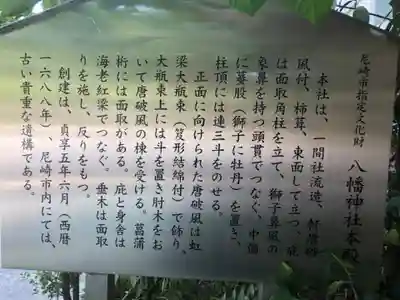 尼崎市指定文化財　八幡神社本殿
本社は、一間社流造、軒唐破
風付、柿葺、東面して立つ。庇
は面取角柱を立て、獅子鼻風の
象鼻を持つ頭貫でつなぐ。中備
に蟇股（獅子に牡丹）を置き、
柱頂には連三斗をのせる。
正面に向けられた唐破風は虹
梁大瓶束（笈形結綿付）で飾り、
大瓶束上には斗を置き肘木をお
いて唐破風の棟を受ける。菖蒲
桁には面取がある。庇と身舎は
海老虹梁でつなぐ。垂木は面取
りを施し、反りをもつ。
創建は、貞享五年六月（西暦
一六八八年）尼崎市内にては、
古い貴重な遺構である。